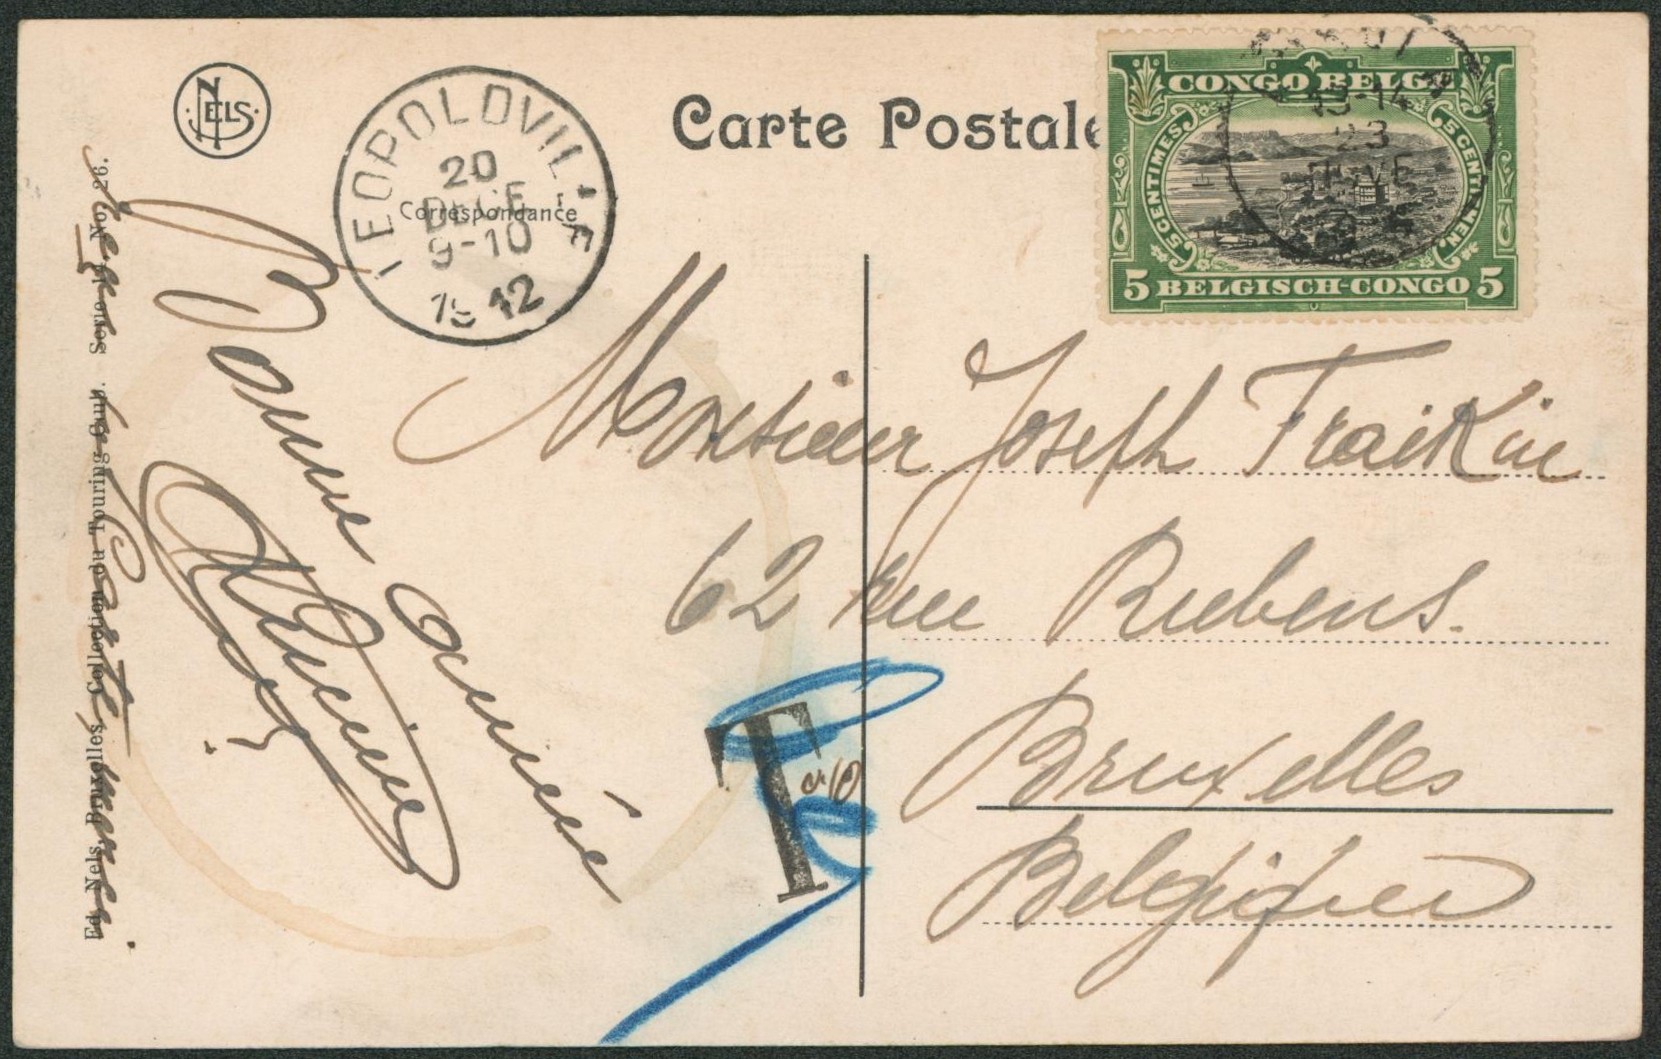 NELS
Carte Postale
Correspondance
LEOPOLDVILLE
20
DECE
9-10
1912
CONGO BELGE
5 CENTIMES
5 CENTIEMEN
5 BELGISCH-CONGO 5
13-14
23
Ed. Nels, Bruxelles. Collection du Touring Club. Serie 14 No 26.
Reçu ta Carte, merci.
Bonne année
T
Monsieur Joseph Fraikin
62 rue Rubens.
Bruxelles
Belgique